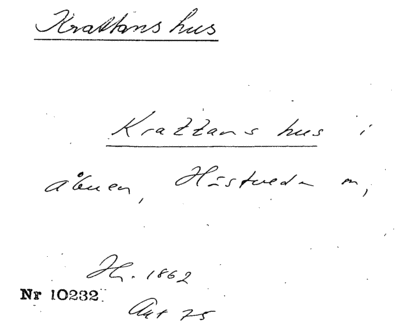 Krattans hus
Krattans hus i
åbuen, Hästveda m,
H. 1862
Nr 10232.
Ant 75